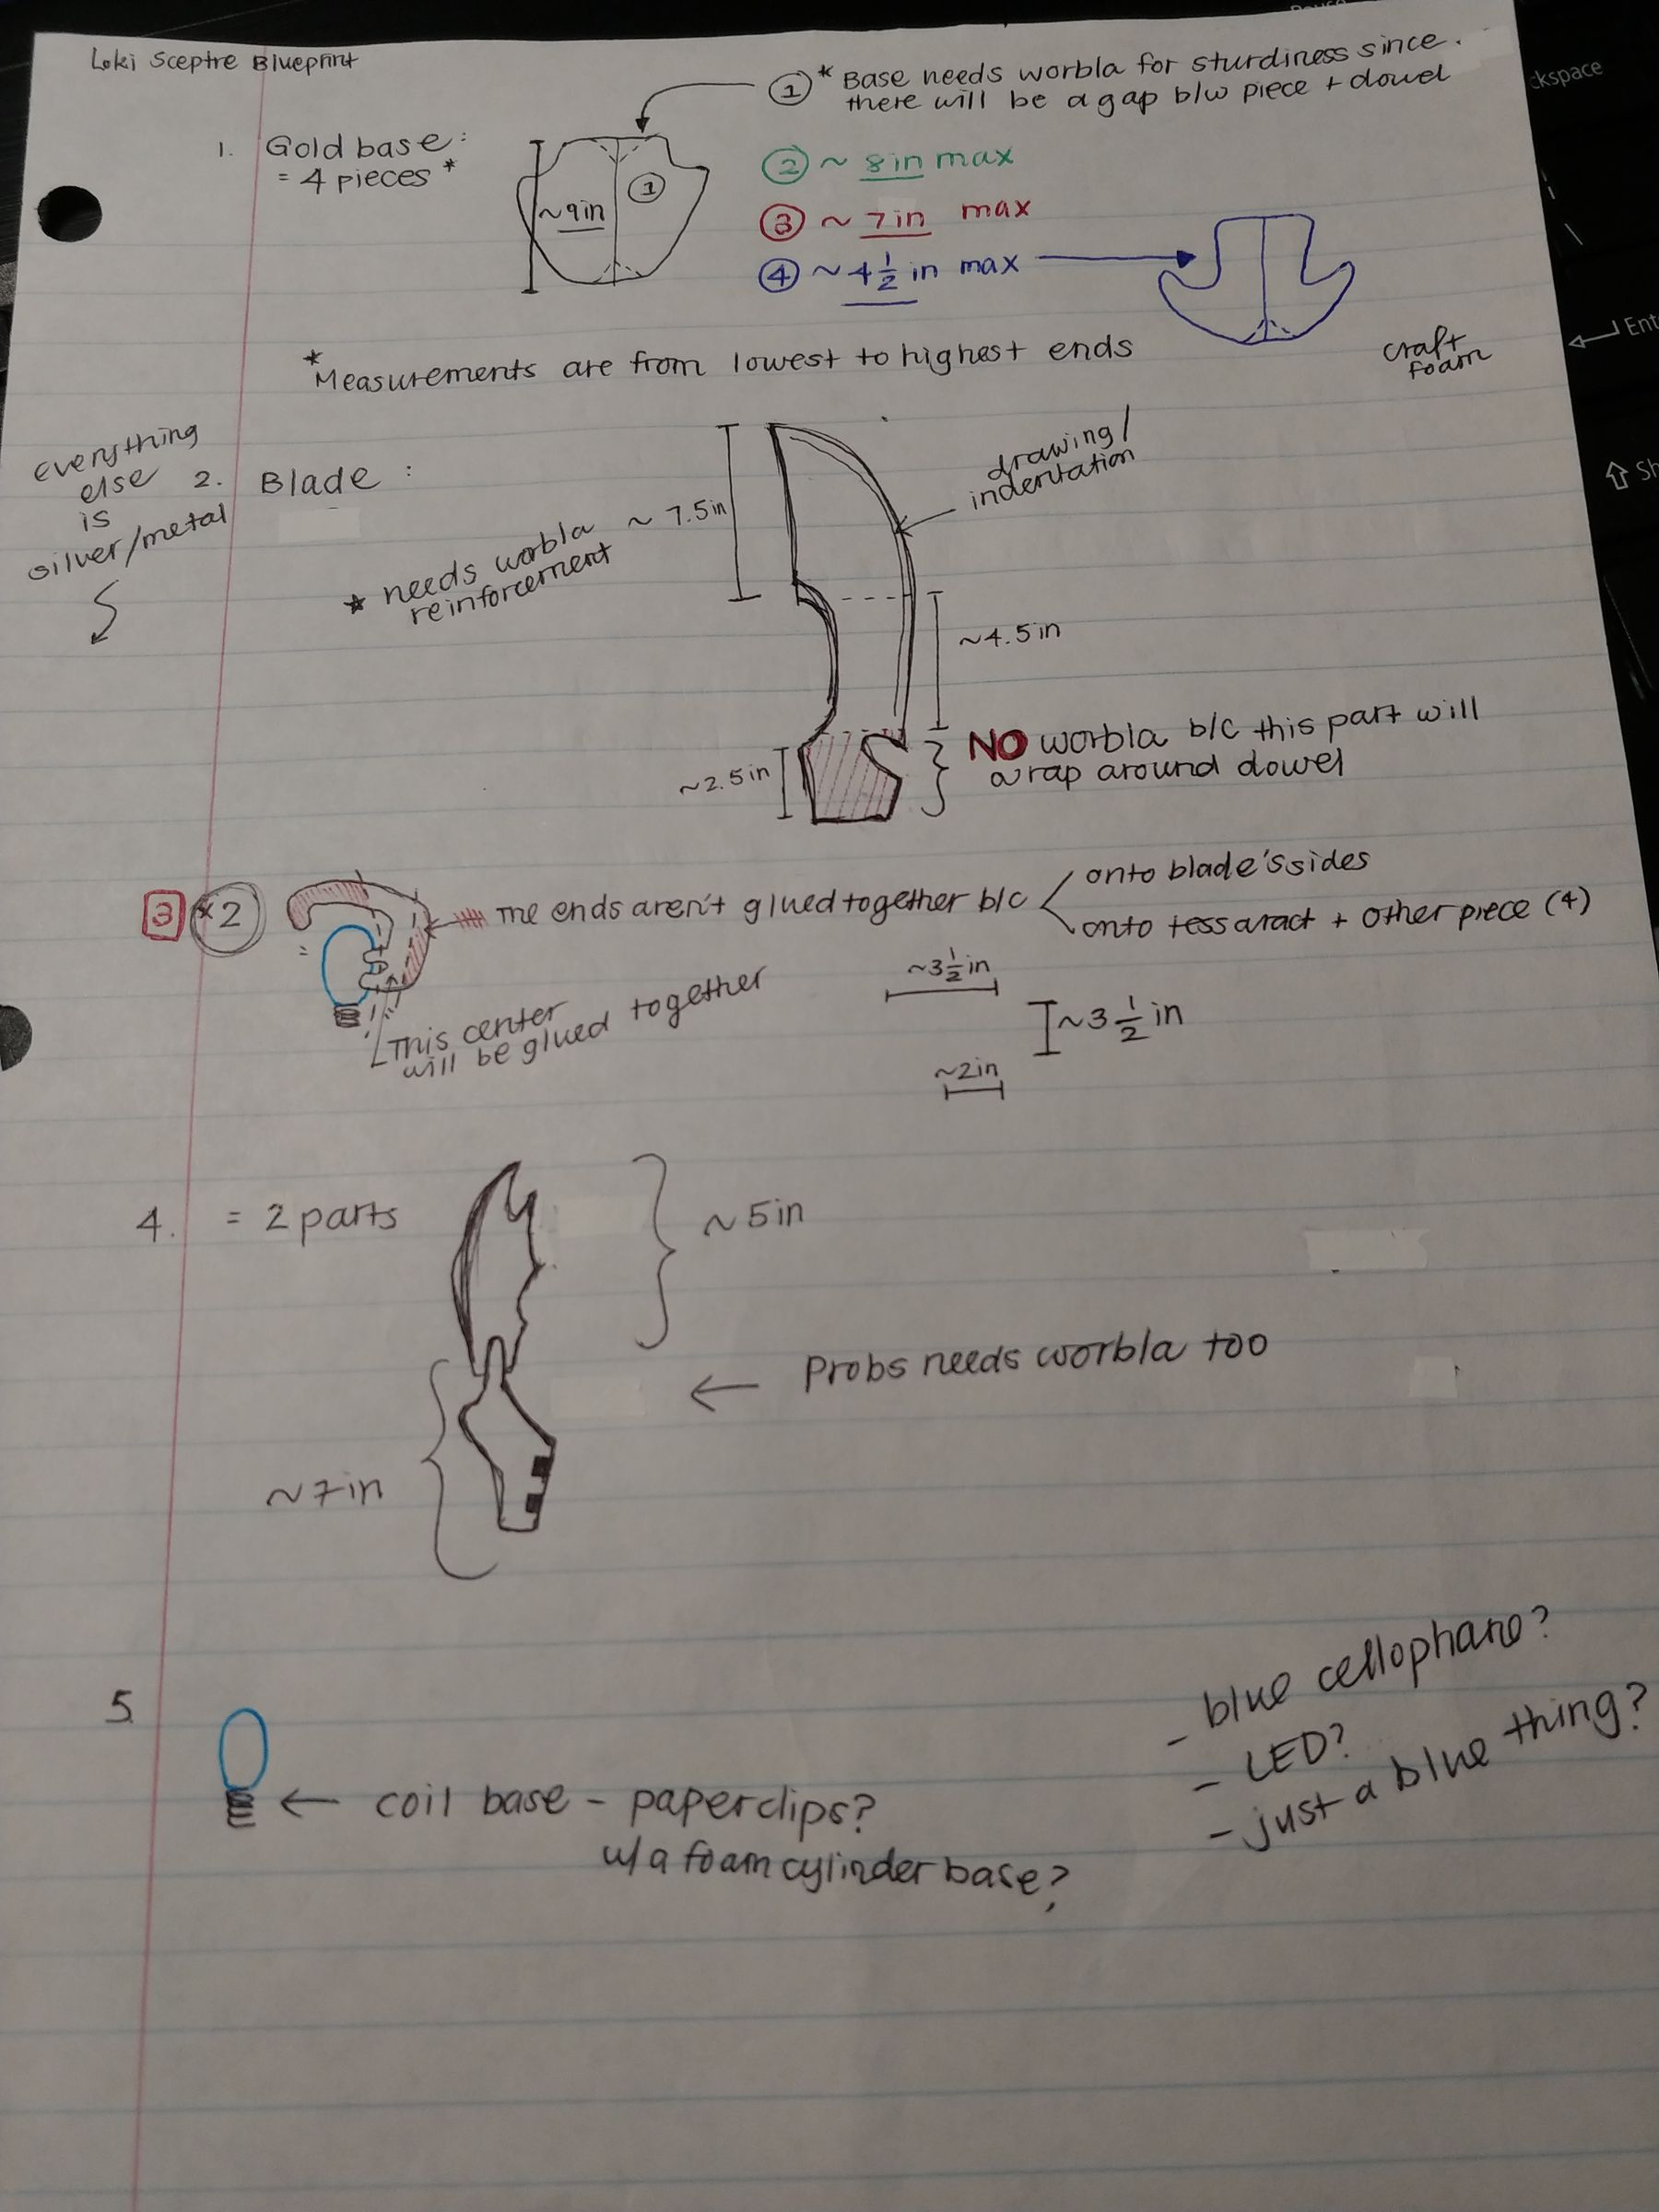 Loki Sceptre Blueprint
1. Gold base:
= 4 pieces *
~9in
1
① * Base needs worbla for sturdiness since.
there will be a gap b/w piece + dowel
② ~ 8in max
③ ~ 7in max
④ ~ 4 1/2 in max
* Measurements are from lowest to highest ends
craft
foam
everything
else
is
silver/metal
2. Blade:
* needs worbla
reinforcement
~ 7.5in
drawing/
indentation
~4.5in
~2.5in
NO worbla b/c this part will
wrap around dowel
3 *2
=
The ends aren't glued together b/c
onto blade's sides
onto tessaract + other piece (4)
This center
will be glued together
~3 1/2 in
~3 1/2 in
~2in
4. = 2 parts
~5in
← Probs needs worbla too
~7in
5
← coil base - paperclips?
w/a foam cylinder base?
- blue cellophane?
- LED?
- just a blue thing?
ckspace
Ent
Sh